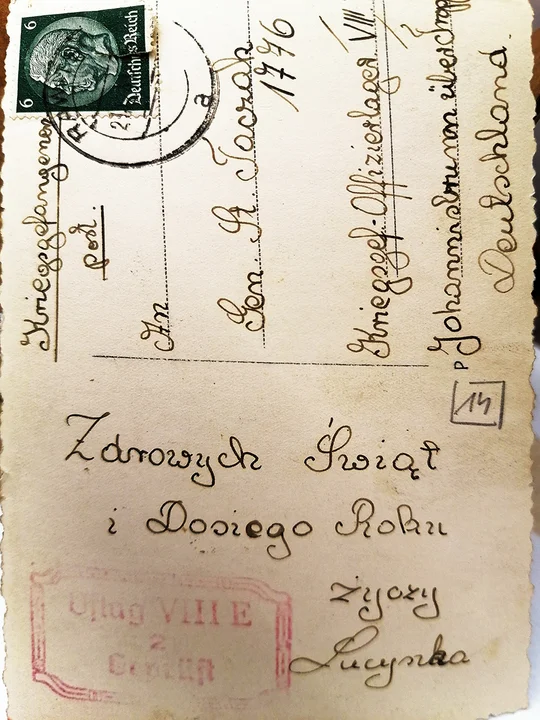 6 Deutsches Reich 6
a
Kriegsgefangenen
post.
An
Gen. St. Taczak
1776
Kriegsgef-Offizierlager VIII
Johannisbrunn über
Deutschland.
P
14
Zdrowych Świąt
i Dosiego Roku
życzy
Lucynka
Oflag VIII E
2
Geprüft